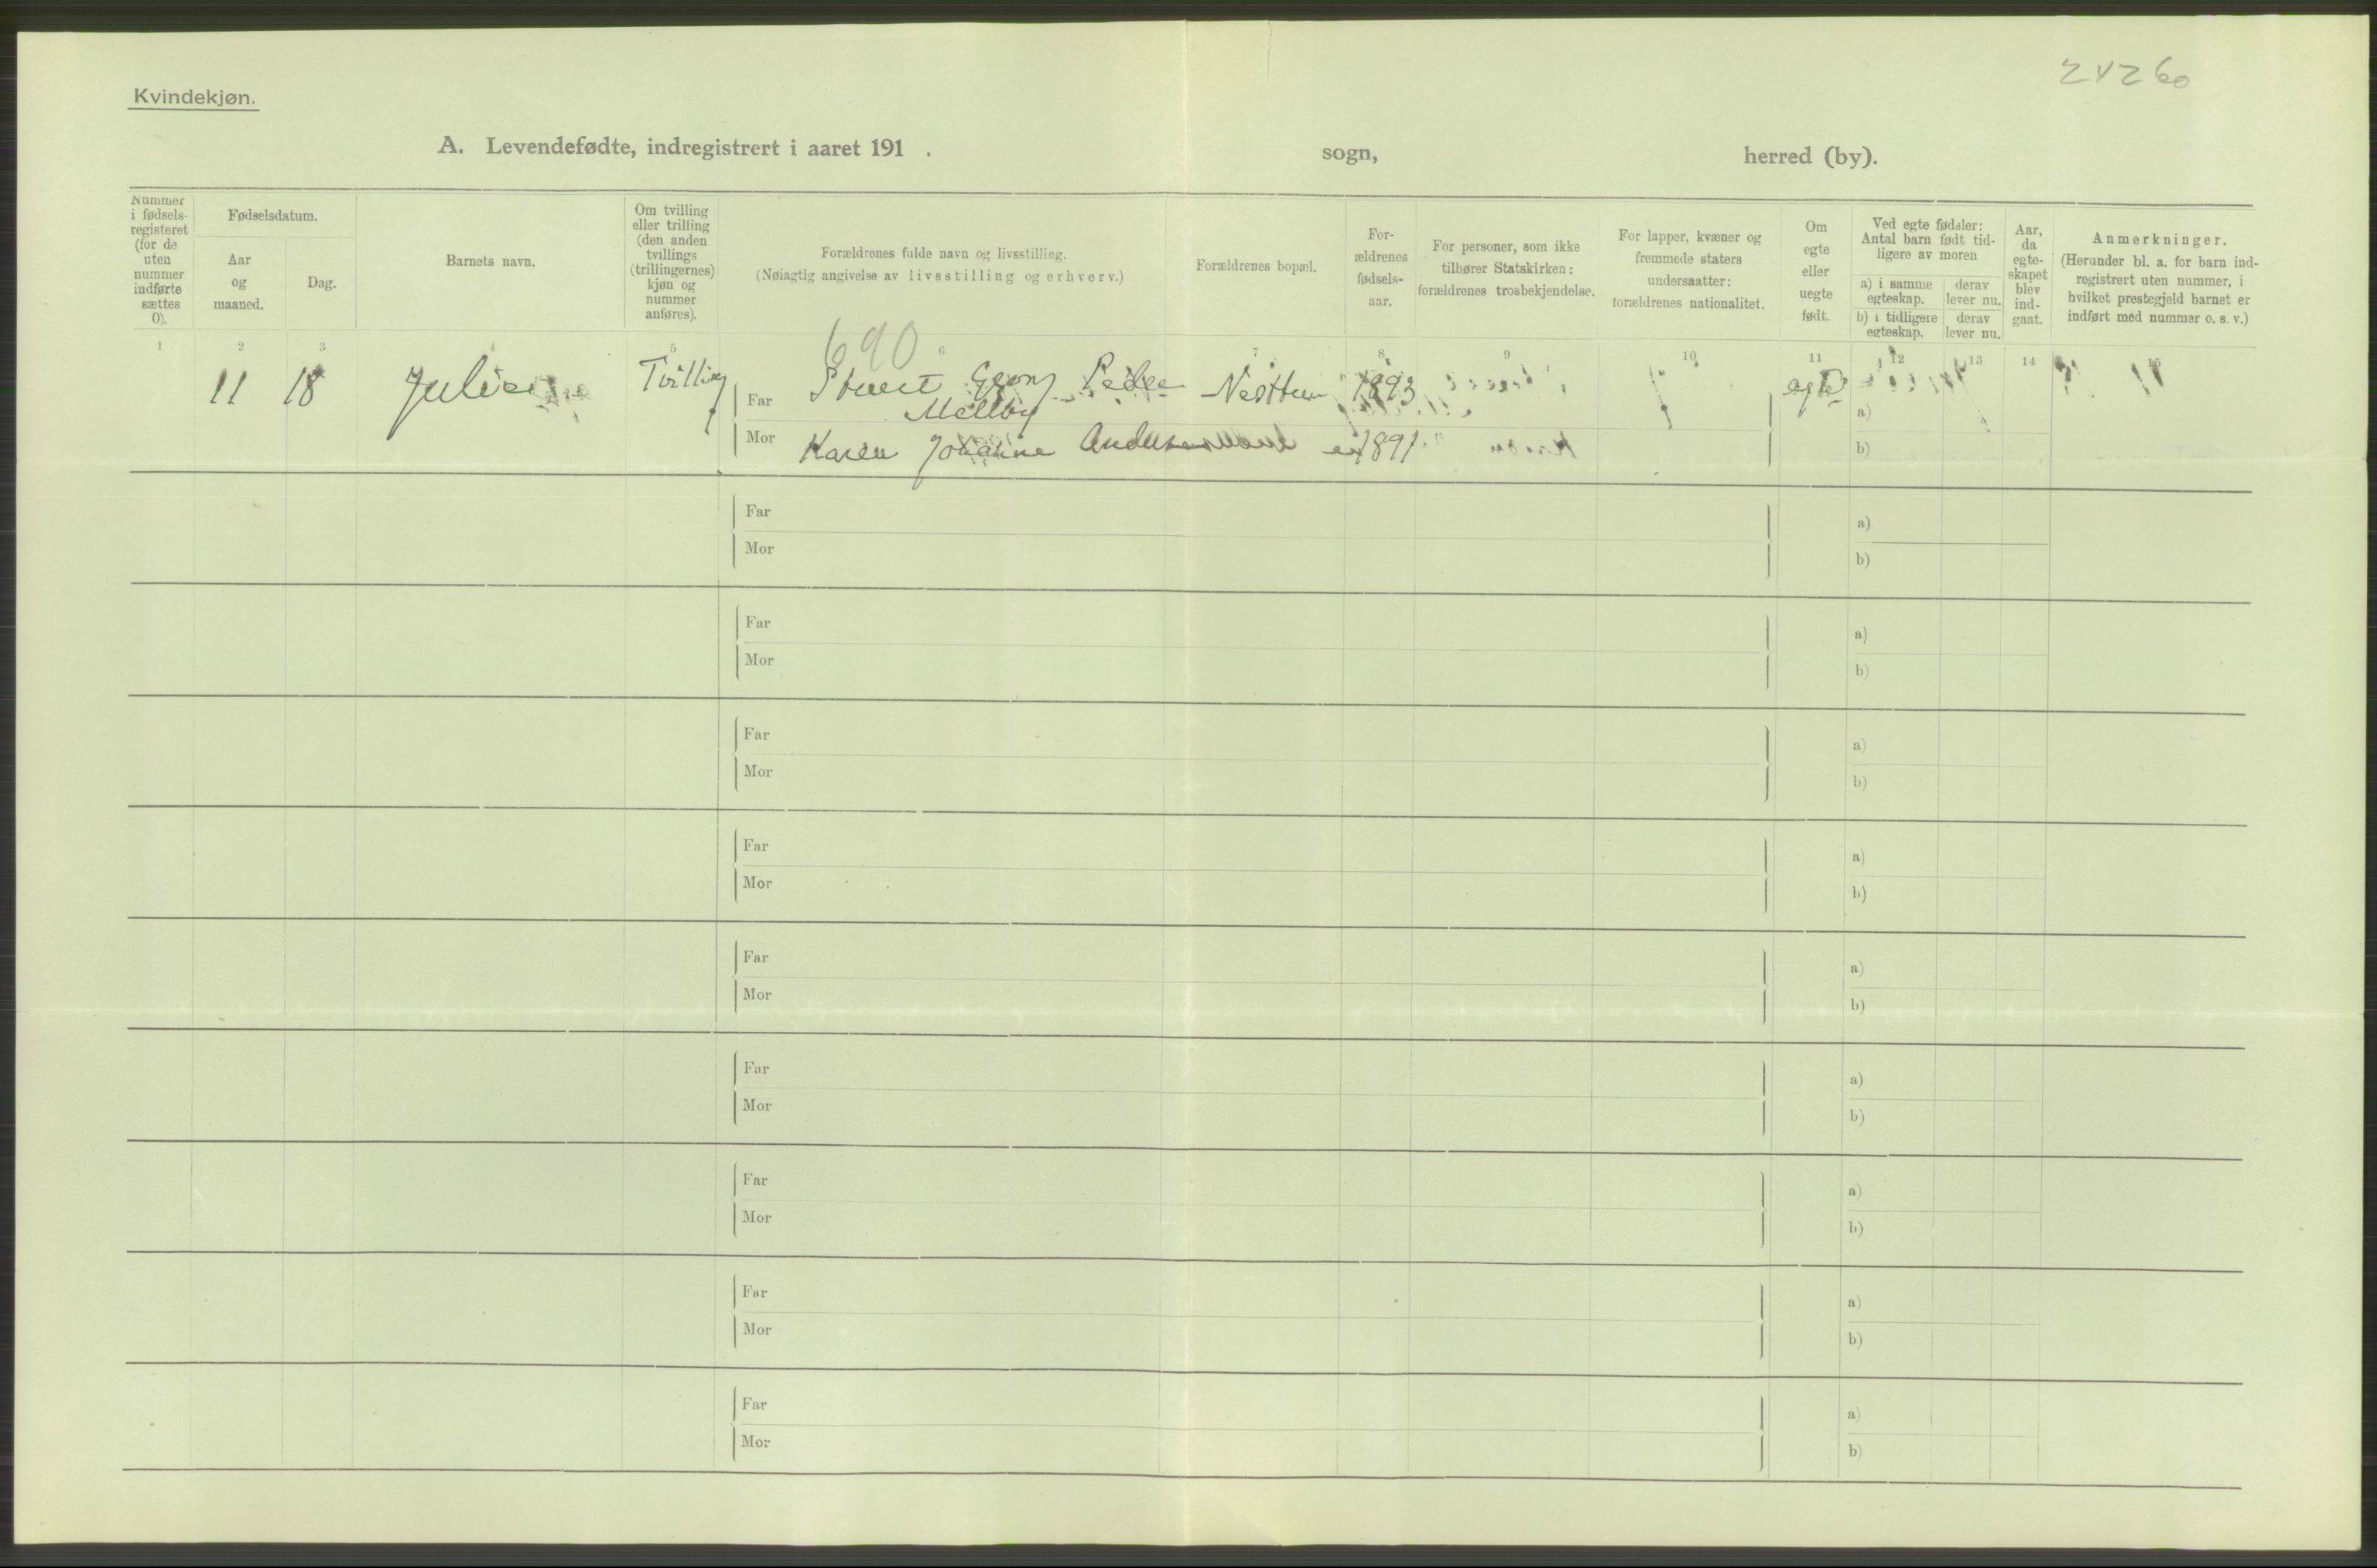 24260
Kvindekjøn.
A. Levendefødte, indregistrert i aaret 191 . sogn, herred (by).
Nummer i fødsels- registeret (for de uten nummer indførte sættes 0).
Fødselsdatum.
Aar og maaned.
Dag.
Barnets navn.
Om tvilling eller trilling (den anden tvillings (trillingernes) kjøn og nummer anføres).
Forældrenes fulde navn og livsstilling.
(Nøiagtig angivelse av livsstilling og erhverv.)
Forældrenes bopæl.
For- ældrenes fødsels- aar.
For personer, som ikke tilhører Statskirken: forældrenes trosbekjendelse.
For lapper, kvæner og fremmede staters undersaatter: forældrenes nationalitet.
Om egte eller uegte født.
Ved egte fødsler: Antal barn født tid- ligere av moren
a) i samme egteskap.
derav lever nu.
b) i tidligere egteskap.
derav lever nu.
Aar, da egte- skapet blev ind- gaat.
Anmerkninger.
(Herunder bl. a. for barn ind- registrert uten nummer, i hvilket prestegjeld barnet er indført med nummer o. s. v.)
1 2 3 4 5 6 7 8 9 10 11 12 13 14 15
690
11 18 Tvilling Far Georg Peder Nesttun 1893 egte a)
Mellby
Mor Karen Johanne 1891 b)
Far a)
Mor b)
Far a)
Mor b)
Far a)
Mor b)
Far a)
Mor b)
Far a)
Mor b)
Far a)
Mor b)
Far a)
Mor b)
Far a)
Mor b)
Far a)
Mor b)